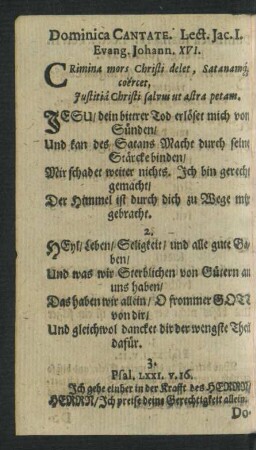 Dominica CANTATE. Lect. Jac. I.
Evang. Johann. XVI.
CRimina mors Christi delet, Satanamq;
coërcet,
Justitiâ Christi salvus ut astra petam.
JESU/ dein bitter Tod erlöset mich von
Sünden/
Und kan des Satans Macht durch seine
Stärcke binden/
Mir schadet weiter nichts. Ich bin gerecht
gemacht/
Der Himmel ist durch dich zu Wege mir
gebracht.
2.
HEyl/ Leben/ Seligkeit/ und alle gute Ga-
ben/
Und was wir Sterblichen von Gütern an
uns haben/
Das haben wir allein/ O frommer GOTT
von dir/
Und gleichwol dancket dir der wengste Theil
dafür.
3.
Psal. LXXI. v. 16.
Ich gehe einher in der Krafft des HERRN/
HERRN/ Ich preise deine Gerechtigkeit allein.
Do-